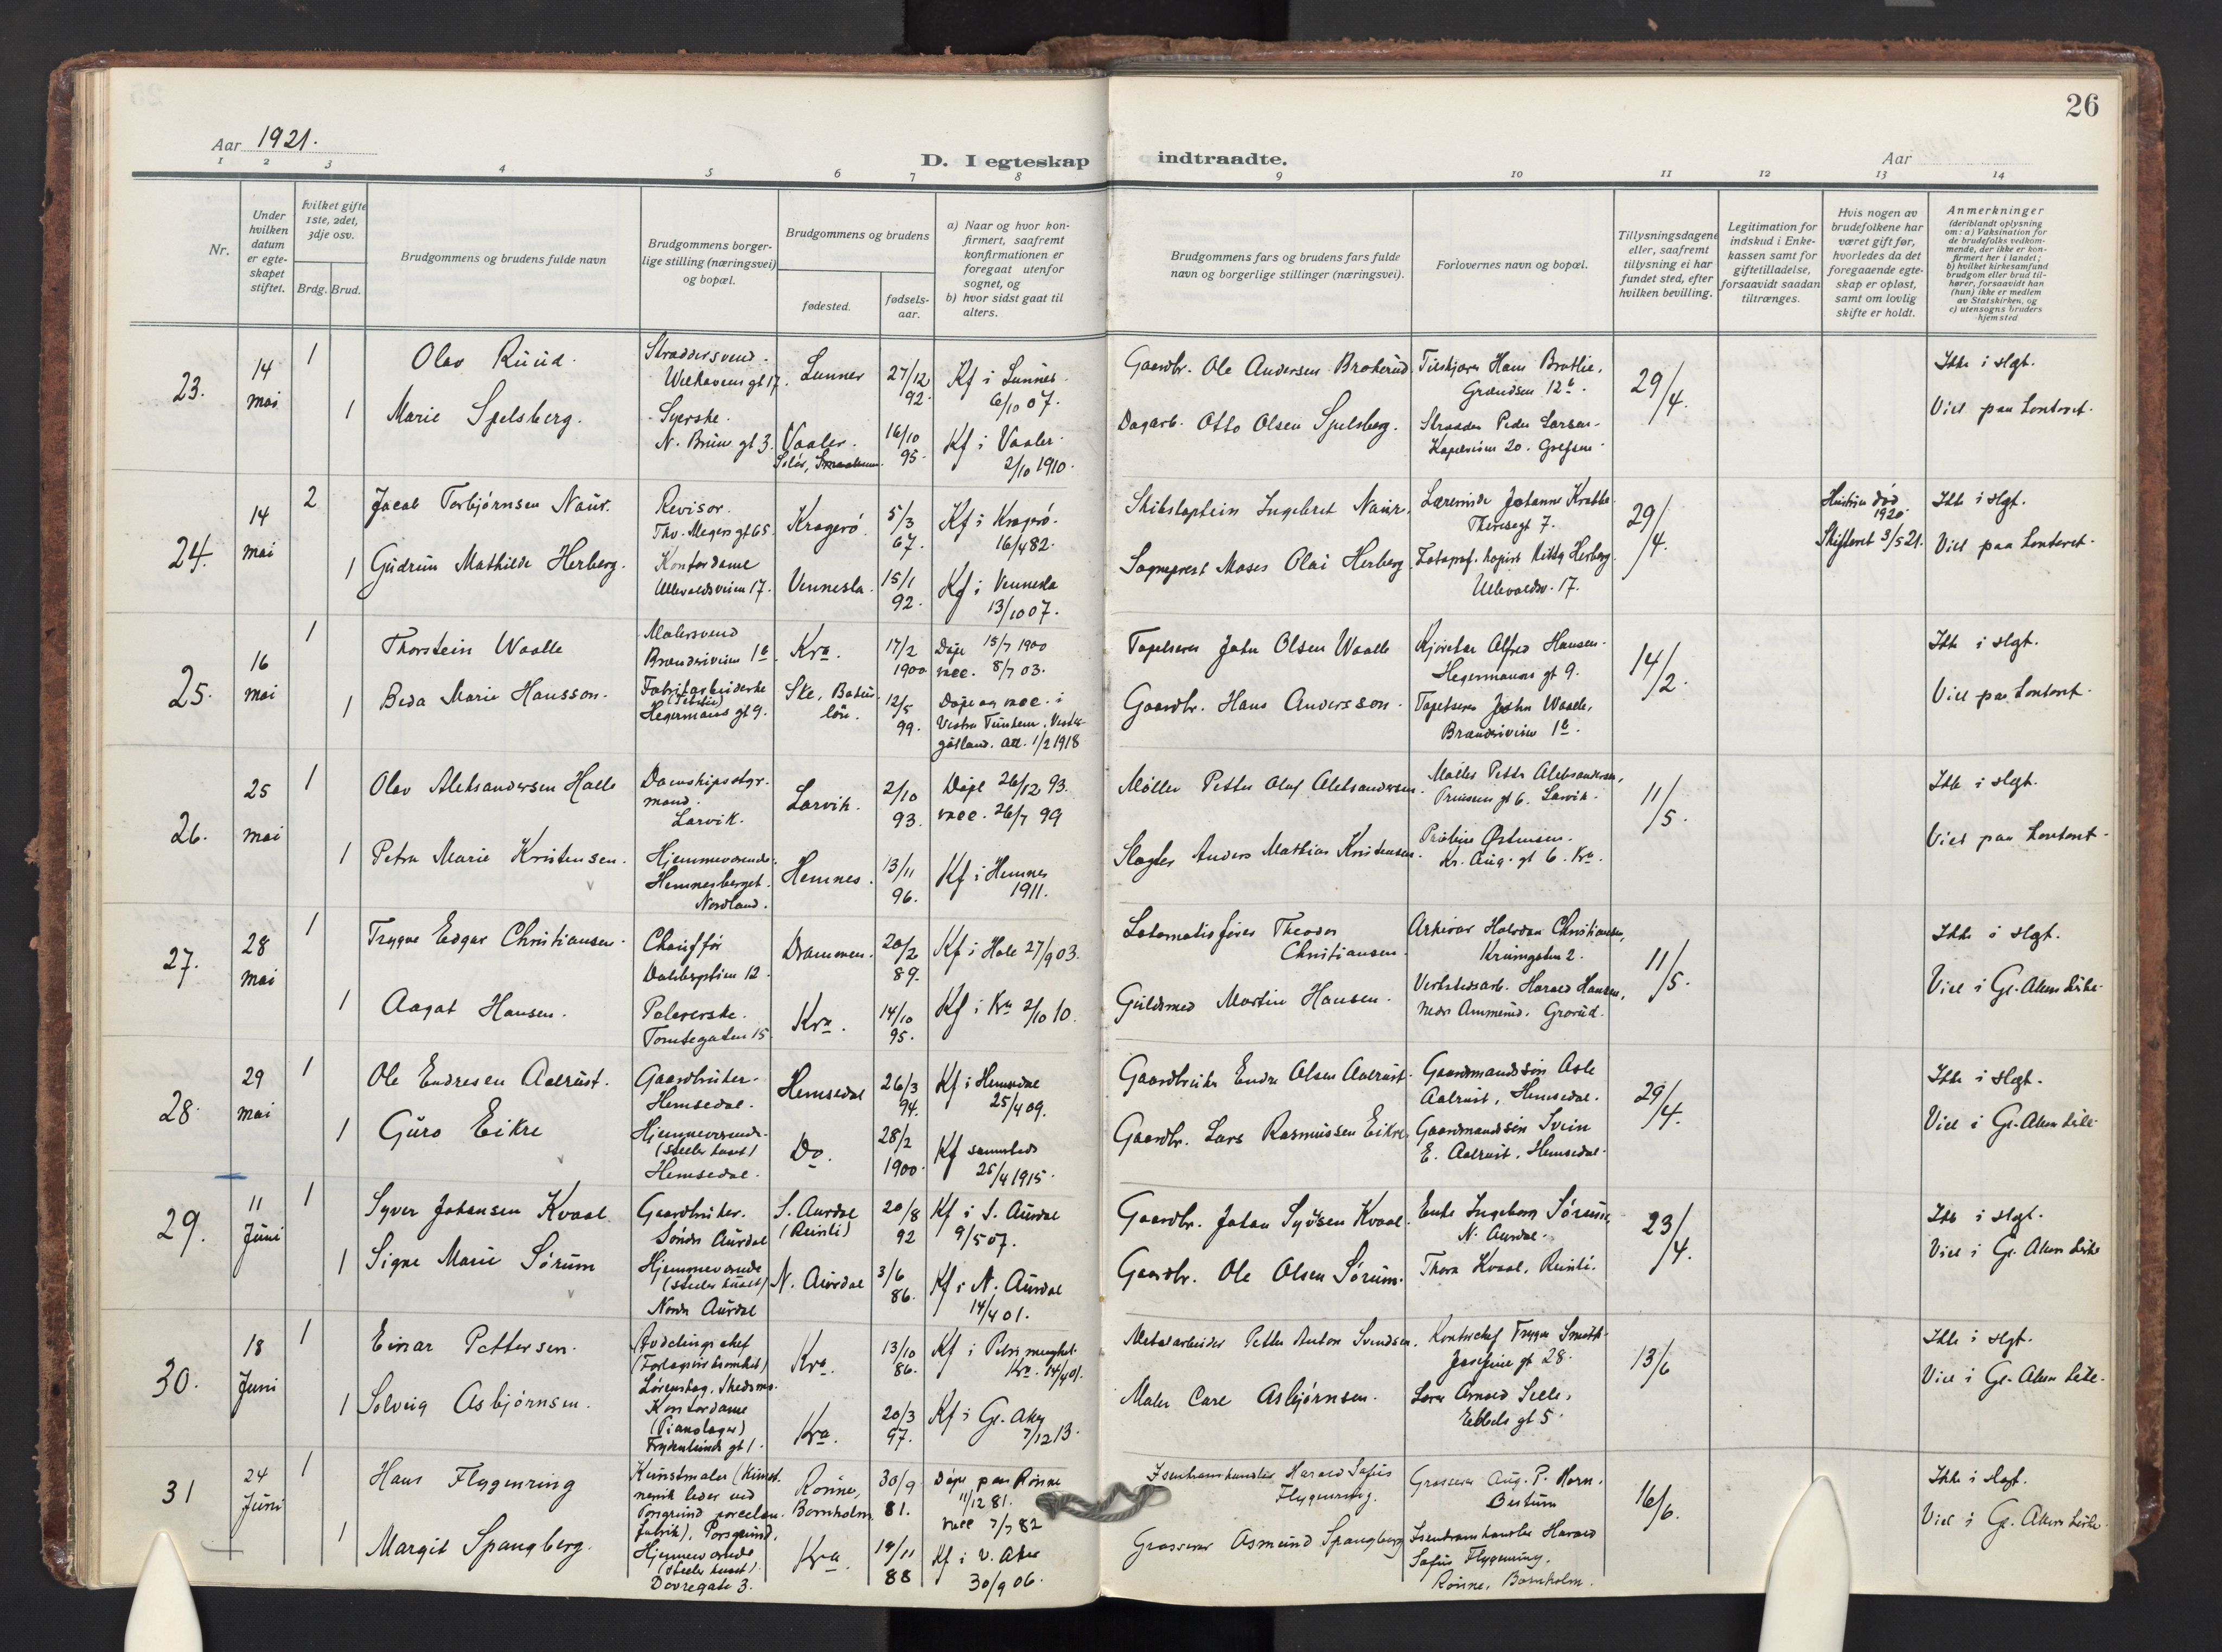 26
Aar 1921.
D. I egteskap indtraadte.
Aar
1 2 3 4 5 6 7 8 9 10 11 12 13 14
Nr.
Under hvilken datum er egteskapet stiftet.
hvilket gifte 1ste, 2det, 3dje osv.
Brdg. Brud.
Brudgommens og brudens fulde navn
Brudgommens borgerlige stilling (næringsvei) og bopæl.
Brudgommens og brudens
fødested.
fødselsaar.
a) Naar og hvor konfirmert, saafremt konfirmationen er foregaat utenfor sognet, og
b) hvor sidst gaat til alters.
Brudgommens fars og brudens fars fulde navn og borgerlige stillinger (næringsvei).
Forlovernes navn og bopæl.
Tillysningsdagene eller, saafremt tillysning ei har fundet sted, efter hvilken bevilling.
Legitimation for indskud i Enkekassen samt for giftetilladelse, forsaavidt saadan tiltrænges.
Hvis nogen av brudefolkene har været gift før, hvorledes da det foregaaende egteskap er opløst, samt om lovlig skifte er holdt.
Anmerkninger (deriblandt oplysning om: a) Vaksination for de brudefolks vedkommende, der ikke er konfirmert her i landet; b) hvilket kirkesamfund brudgom eller brud tilhører, forsaavidt han (hun) ikke er medlem av Statskirken, og c) utensogns bruders hjemsted
23. 14 mai 1 Olav Ruud. Skræddersvend. gt 17. Lunner 27/12 92. Kf i Lunner 6/10 07. Gaardbr. Ole Andersen Hans Bratlie, Grændsen 12 b. 29/4. Ikke i slgt.
1 Marie Spelsberg. Syerske. N. Bruns gt 3. Vaaler. Solør, 16/10 95. Kf i Vaaler. 2/10 1910. Dagarb. Otto Olsen Spelsberg. Skrædder Peder Larsen. 20. Grefsen. Viet paa kontoret.
24. 14 mai 2 Jacob Torbjørnsen Nauer. Revisor. Thv. Meyers gt 65 Kragerø 5/3 67. Kf i Kragerø. 16/4 82. Skibskaptein Ingebret Lærerinde Johanne Krabbe. Theresegt 7. 29/4. Hustru død 1920. Skifteret 3/5 21. Ikke i slgt.
1 Gudrun Mathilde Herberg. Kontordame Ullevaldsveien 17. Vennesla. 15/1 92. Kf i Vennesla 13/10 07. Sogneprest Moses Olai Herberg. Herberg. Ullevaldsv. 17. Viet paa kontoret.
25. 16 mai 1 Thorstein Waalle Malersvend 1 b. Kra. 17/2 1900 Døpt 15/7 1900 vacc. 8/7 03. Tapetserer John Olsen Waalle Kjøretør Alfred Hansen. Hegermanns gt 9. 14/2. Ikke i slgt.
1 Beda Marie Hansson. Fabrikarbeiderske Hegermanns gt 9. 12/5 99. Døpt og vacc. i Vestra Tunhem. Vestergötland. att. 1/2 1918 Gaardbr. Hans Andersson. Tapetserer John Waalle, 1 b. Viet paa kontoret.
26. 25 mai 1 Olav Aleksandersen Halle Dampskipsstyrmand. Larvik. Larvik. 2/10 93. Døpt 26/12 93. vacc. 26/7 99 Møller Petter Olaf Aleksandersen. Møller Petter Aleksandersen, Prinsens gt 6. Larvik. 11/5. Ikke i slgt.
1 Petra Marie Kristensen. Hjemmeværende. Hemnesberget. Nordland. Hemnes. 13/11 96. Kf i Hemnes 1911. Slagter Anders Mathias Kristensen. Kr. Aug. gt 6. Kra. Viet paa kontoret.
27. 28 mai 1 Trygve Edgar Christiansen. Chauffør Dalsbergstien 12. Drammen. 20/2 89. Kf i Hole 27/9 03. Lokomotivfører Theodor Christiansen. Arkivar Halvdan Christiansen, 2. 11/5. Ikke i slgt.
1 Aagot Hansen. Polererske. Tomtegaten 15. Kra. 14/10 95. Kf i Kra 2/10 10. Guldsmed Martin Hansen. Verkstedsarb. Harald Hansen, nedr. Ammerud. Grorud. Viet i Gl. Aker kirke.
28. 29 mai 1 Ole Endresen Aalrust. Gaardbruker. Hemsedal. Hemsedal 26/3 94. Kf i Hemsedal 25/4 09. Gaardbruker Endre Olsen Aalrust. Gaardmandssøn Asle Aalrust, Hemsedal. 29/4. Ikke i slgt.
1 Guro Eikre Hjemmeværende. (steller huset) Hemsedal. Do. 28/2 1900. Kf sammesteds 25/4 1915. Gaardbr. Lars Rasmussen Eikre. Gaardmandssøn Svein E. Aalrust. Hemsedal. Viet i Gl. Aker kirke
29. 11 Juni 1 Syver Johansen Kvaal Gaardbruker. Søndre Aurdal S. Aurdal (Reinli) 20/8 92 Kf i S. Aurdal 9/5 07. Gaardbr. Johan Kvaal. Enke Ingeborg Sørum, N. Aurdal. 23/4. Ikke i slgt.
1 Signe Marie Sørum Hjemmeværende (steller huset) Nordre Aurdal N. Aurdal 3/6 86. Kf i N. Aurdal 14/4 01. Gaardbr. Ole Olsen Sørum. Thora Kvaal, Reinli. Viet i Gl. Aker kirke
30. 18 Juni 1 Einar Pettersen. Avdelingschef (Forlagsvirksomhet) Lørenskog, Skedsmo. Kra. 13/10 86. Kf i Petri menighet. Kra. 14/4 01. Metalarbeider Petter Anton Svendsen. Kontorchef Trygve Smith. Josefine gt 28. 13/6 Ikke i slgt.
1 Solveig Asbjørnsen. Kontordame (Pianolager) Frydenlunds gt 1. Kra. 20/3 97. Kf i Gl. Aker 7/12 13. Maler Carl Asbjørnsen. Arnold gt 5. Viet i Gl. Aker kirke.
31 24 Juni 1 Hans Flygenring Kunstmaler (kunstnerisk leder ved Porsgrund porcelænsfabrik), Porsgrund. Rønne, Bornholm. 30/9 81. Døpt paa Rønne 11/12 81. vacc 7/7 82 Isenkramhandler Harald Sofus Flygenring. Grosserer Aug. P. Horn. Bestum 16/6. Ikke i slegt.
1 Margit Spangberg. Hjemmeværende (steller huset). Dovregate 3. Kra. 19/11 88 Kf i V. Aker 30/9 06. Grosserer Asmund Spangberg Isenkramhandler Harald Sofus Flygenring, Rønne, Bornholm. Viet i Gl. Akers kirke.